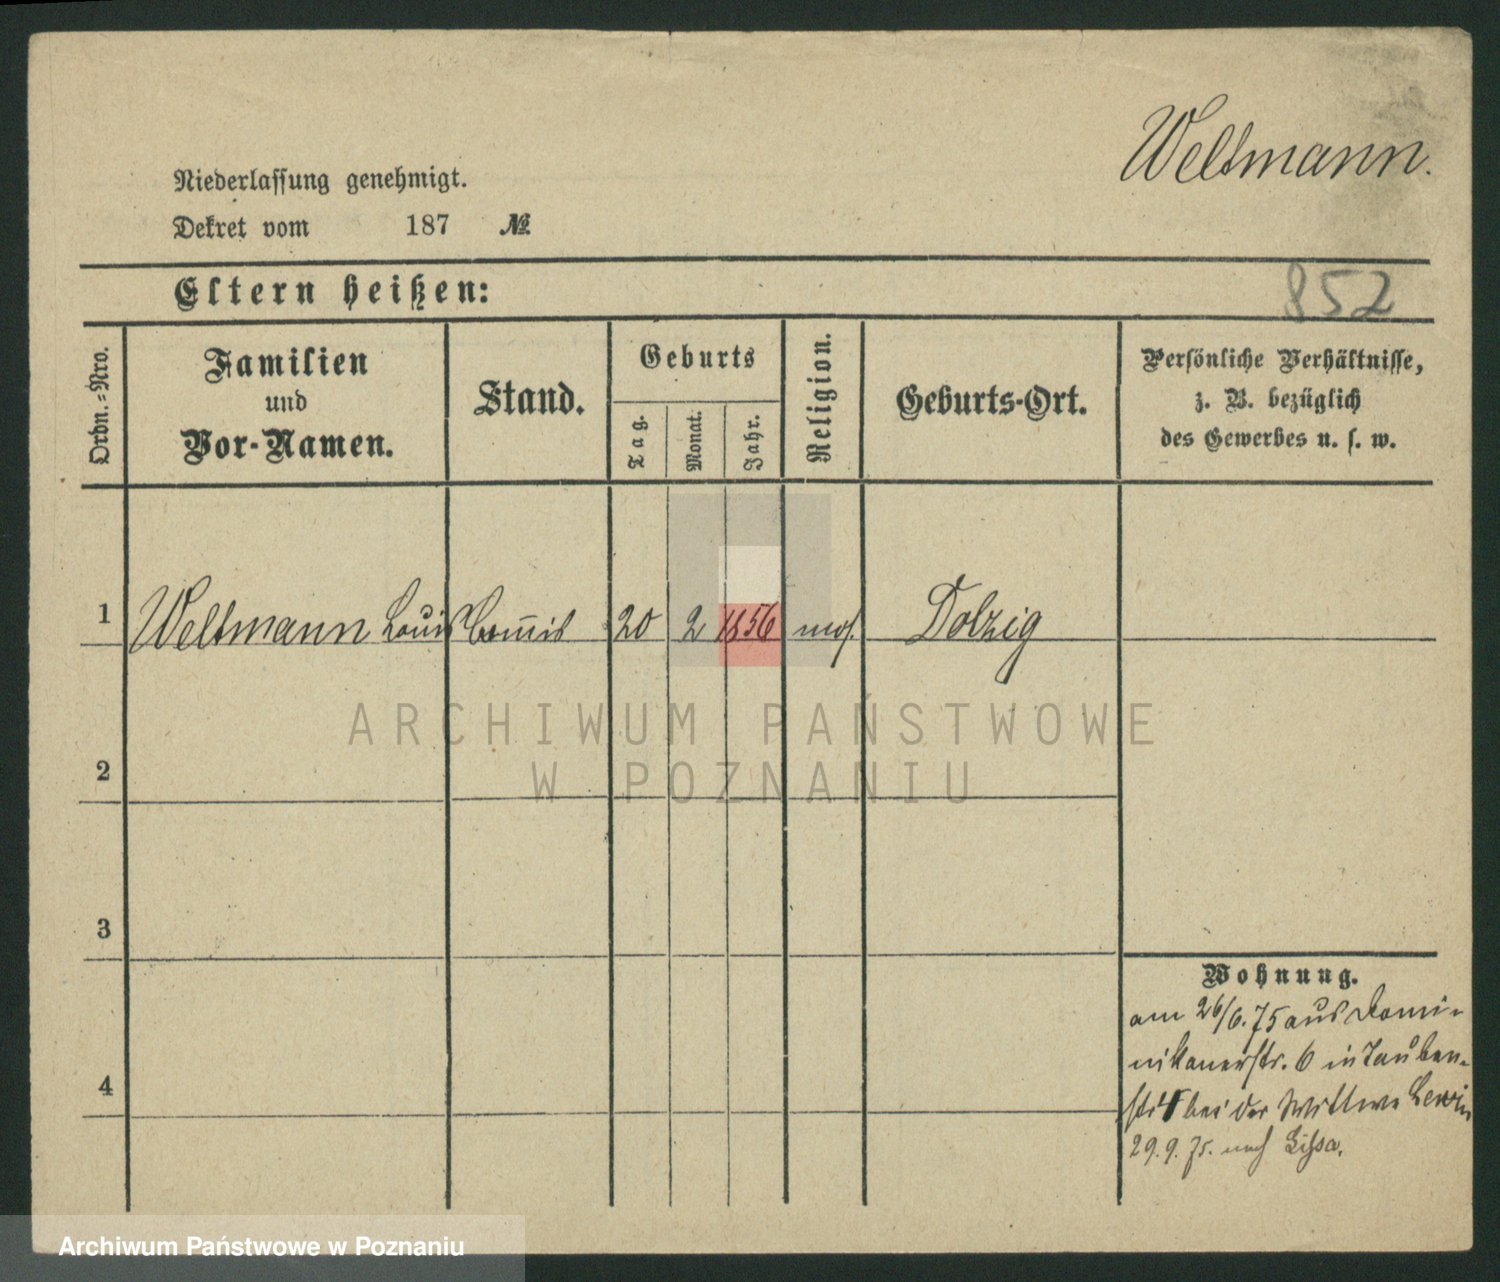 Weltmann.
Niederlassung genehmigt.
Dekret vom 187 №
Eltern heißen:
852
Ordn.-Nro.
Familien
und
Vor-Namen.
Stand.
Geburts
Tag.
Monat.
Jahr.
Religion.
Geburts-Ort.
Persönliche Verhältnisse,
z. B. bezüglich
des Gewerbes u. s. w.
1 Weltmann Louis Com̅is 20 2 1856 mos. Dolzig
ARCHIWUM PAŃSTWOWE
W POZNANIU
2
3
4
Wohnung.
am 26/6. 75 aus Domi-
nikanerstr. 6 in Tauben-
str 4 bei der Wittwe Lewin
29. 9. 75. nach Lissa.
Archiwum Państwowe w Poznaniu